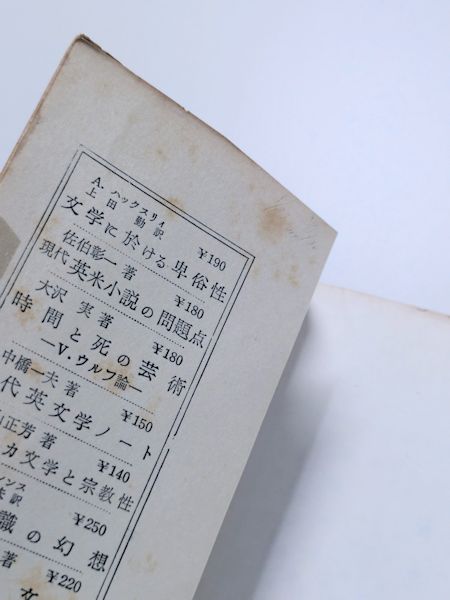 A. ハックスリィ
上田 勤訳 ¥190
文学に於ける卑俗性
佐伯彰一著 ¥180
現代・英米小説の問題点
大沢 実著 ¥180
時間と死の芸術
―V・ウルフ論―
中橋一夫著 ¥150
代英文学ノート
正芳著 ¥140
カ文学と宗教性
ンス
訳 ¥250
識の幻想
著 ¥220